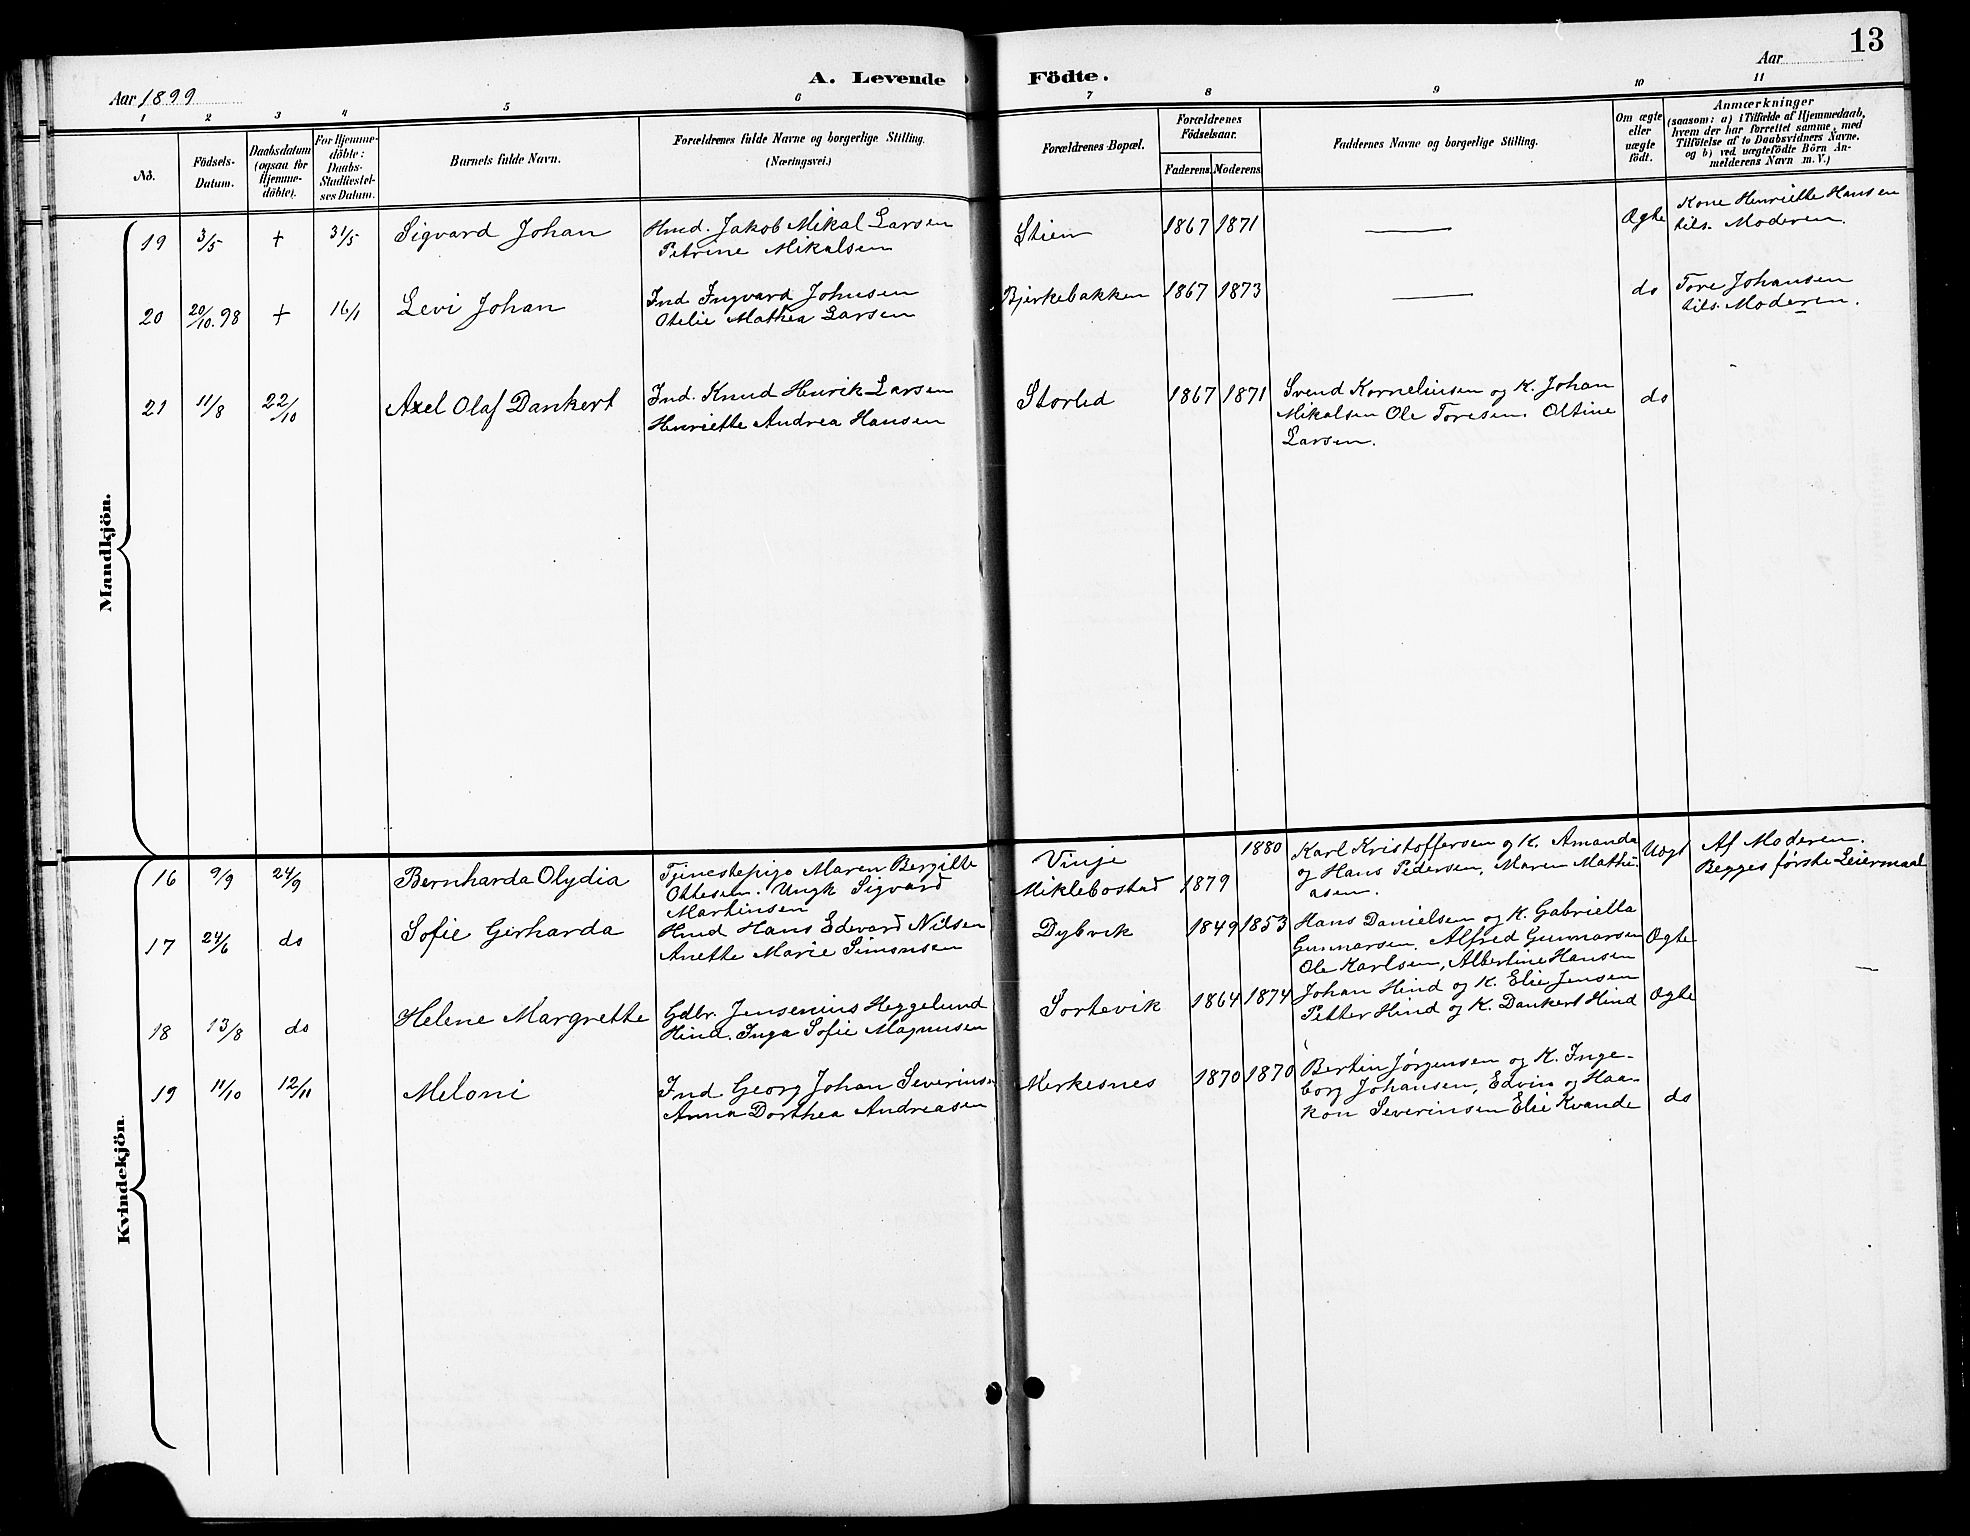 13
A. Levende Födte.
Aar 1899
Aar
1 2 3 4 5 6 7 8 9 10 11
No.
Födsels-Datum.
Daabsdatum (ogsaa for Hjemmedöbte).
For Hjemmedöbte: Daabs-Stadfæstelses Datum.
Barnets fulde Navn.
Forældrenes fulde Navne og borgerlige Stilling.
(Næringsvei.)
Forældrenes Bopæl.
Forældrenes Födselsaar.
Faderens. Moderens.
Faddernes Navne og borgerlige Stilling.
Om ægte eller uægte födt.
Anmærkninger
(saasom: a) i Tilfælde af Hjemmedaab, hvem der har forrettet samme, med Tilföielse af to Daabsvidners Navne. og b) ved uægtefödte Börn Anmelderens Navn m. V.)
Mandkjön.
19 3/5 + 31/5 Sigvard Johan
Hmd. Jakob Mikal Larsen
Petrine Mikalsen
Stien 1867 1871 —
Ægte
Kone Henriette Hansen
tils. Moderen.
20 20/10.98 + 16/1 Levi Johan
Ind Ingvard Johnsen
Otelie Mathea Larsen
Bjerkebakken 1867 1873 —
do
Tore Johansen
tils. Moderen.
21 11/8 22/10 Axel Olaf Dankert
Ind. Knud Henrik Larsen
Henriette Andrea Hansen
Storlid 1867 1871
Svend Kornelinsen og K. Johan
Mikalsen Ole Toresen. Oltine
Larsen.
do
Kvindekjön.
16 9/9 24/9 Bernharda Olydia
Tjenestepige Maren Bergitte
Ottesen. Ungk Sigvard
Martinsen
Vinje
Miklebostad 1879 1880
Karl Kristoffersen og K. Amanda
og Hans Pedersen, Maren Mathi
asen.
Uægt
Af Moderen.
Begges første Leiermaal
17 24/6 do Sofie Gerharda
Hmd Hans Edvard Nilsen
Anette Marie Simonsen
Dybvik 1849 1853
Hans Danielsen og K. Gabriella
Gunnarsen, Alfred Gunnarsen
Ole Karlsen, Albertine Hansen
Ægte
—
18 13/8 do Helene Margrette
Gdbr. Jensenius Heggelund
Hind. Inga Sofie Magnusen
Sortevik 1864 1874
Johan Hind og K. Elie Jensen
Petter Hind og K. Dankert Hind
Ægte
19 11/10 12/11 Meloni
Ind Georg Johan Severinsen
Anna Dorthea Andreasen
Merkesnes 1870 1870
Bertin Jørgensen og K. Inge-
borg Johansen, Edvin og Haa-
kon Severinsen Elie Kvande
do